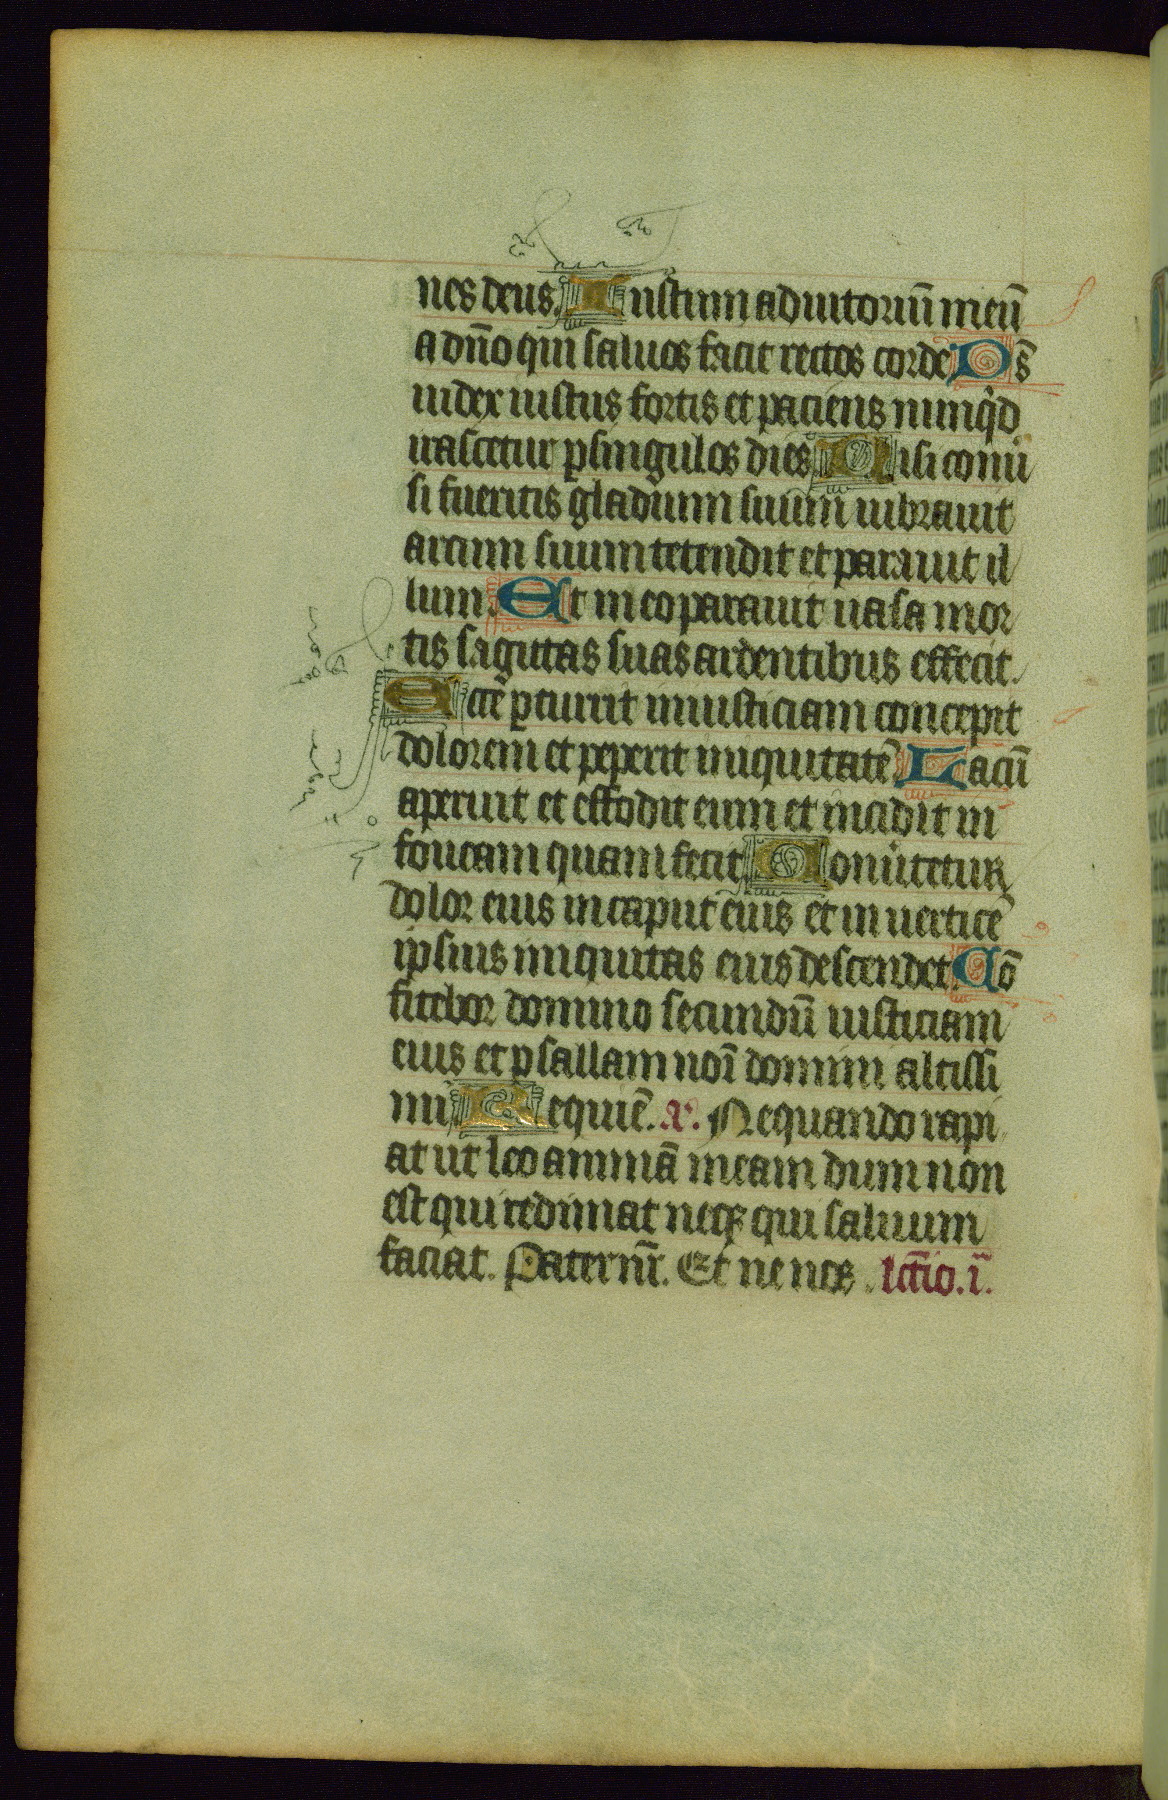 nes deus. Iustum adiutoriū meū
a dn̄o qui saluos facit rectos corde Ds̄
iudex iustus fortis et paciens nunqͥd
irascetur ꝑ singulos dies Nisi conu̾
si fueritis gladium suum uibrauit
arcum suum tetendit et parauit il
lum. Et in eo parauit uasa mor
tis sagittas suas ardentibus effecit.
Ecce ꝑturiit iniusticiam concepit
dolorem et peperit iniquitatē Lacū
aperuit et effodit eum et incidit in
foueam quam fecit. Conu̾tetur
dolor eius in caput eius et in uerticē
ipsius iniquitas eius descendet. Cō
fitebor domino secundū iusticiam
eius et psallam noī domini altissi
mi Requiē. A. Nequando rapi
at ut leo animā meam dum non
est qui redimat neqꝫ qui saluum
faciat. Pater nr̄. Et ne nos. lc̄tio. i.